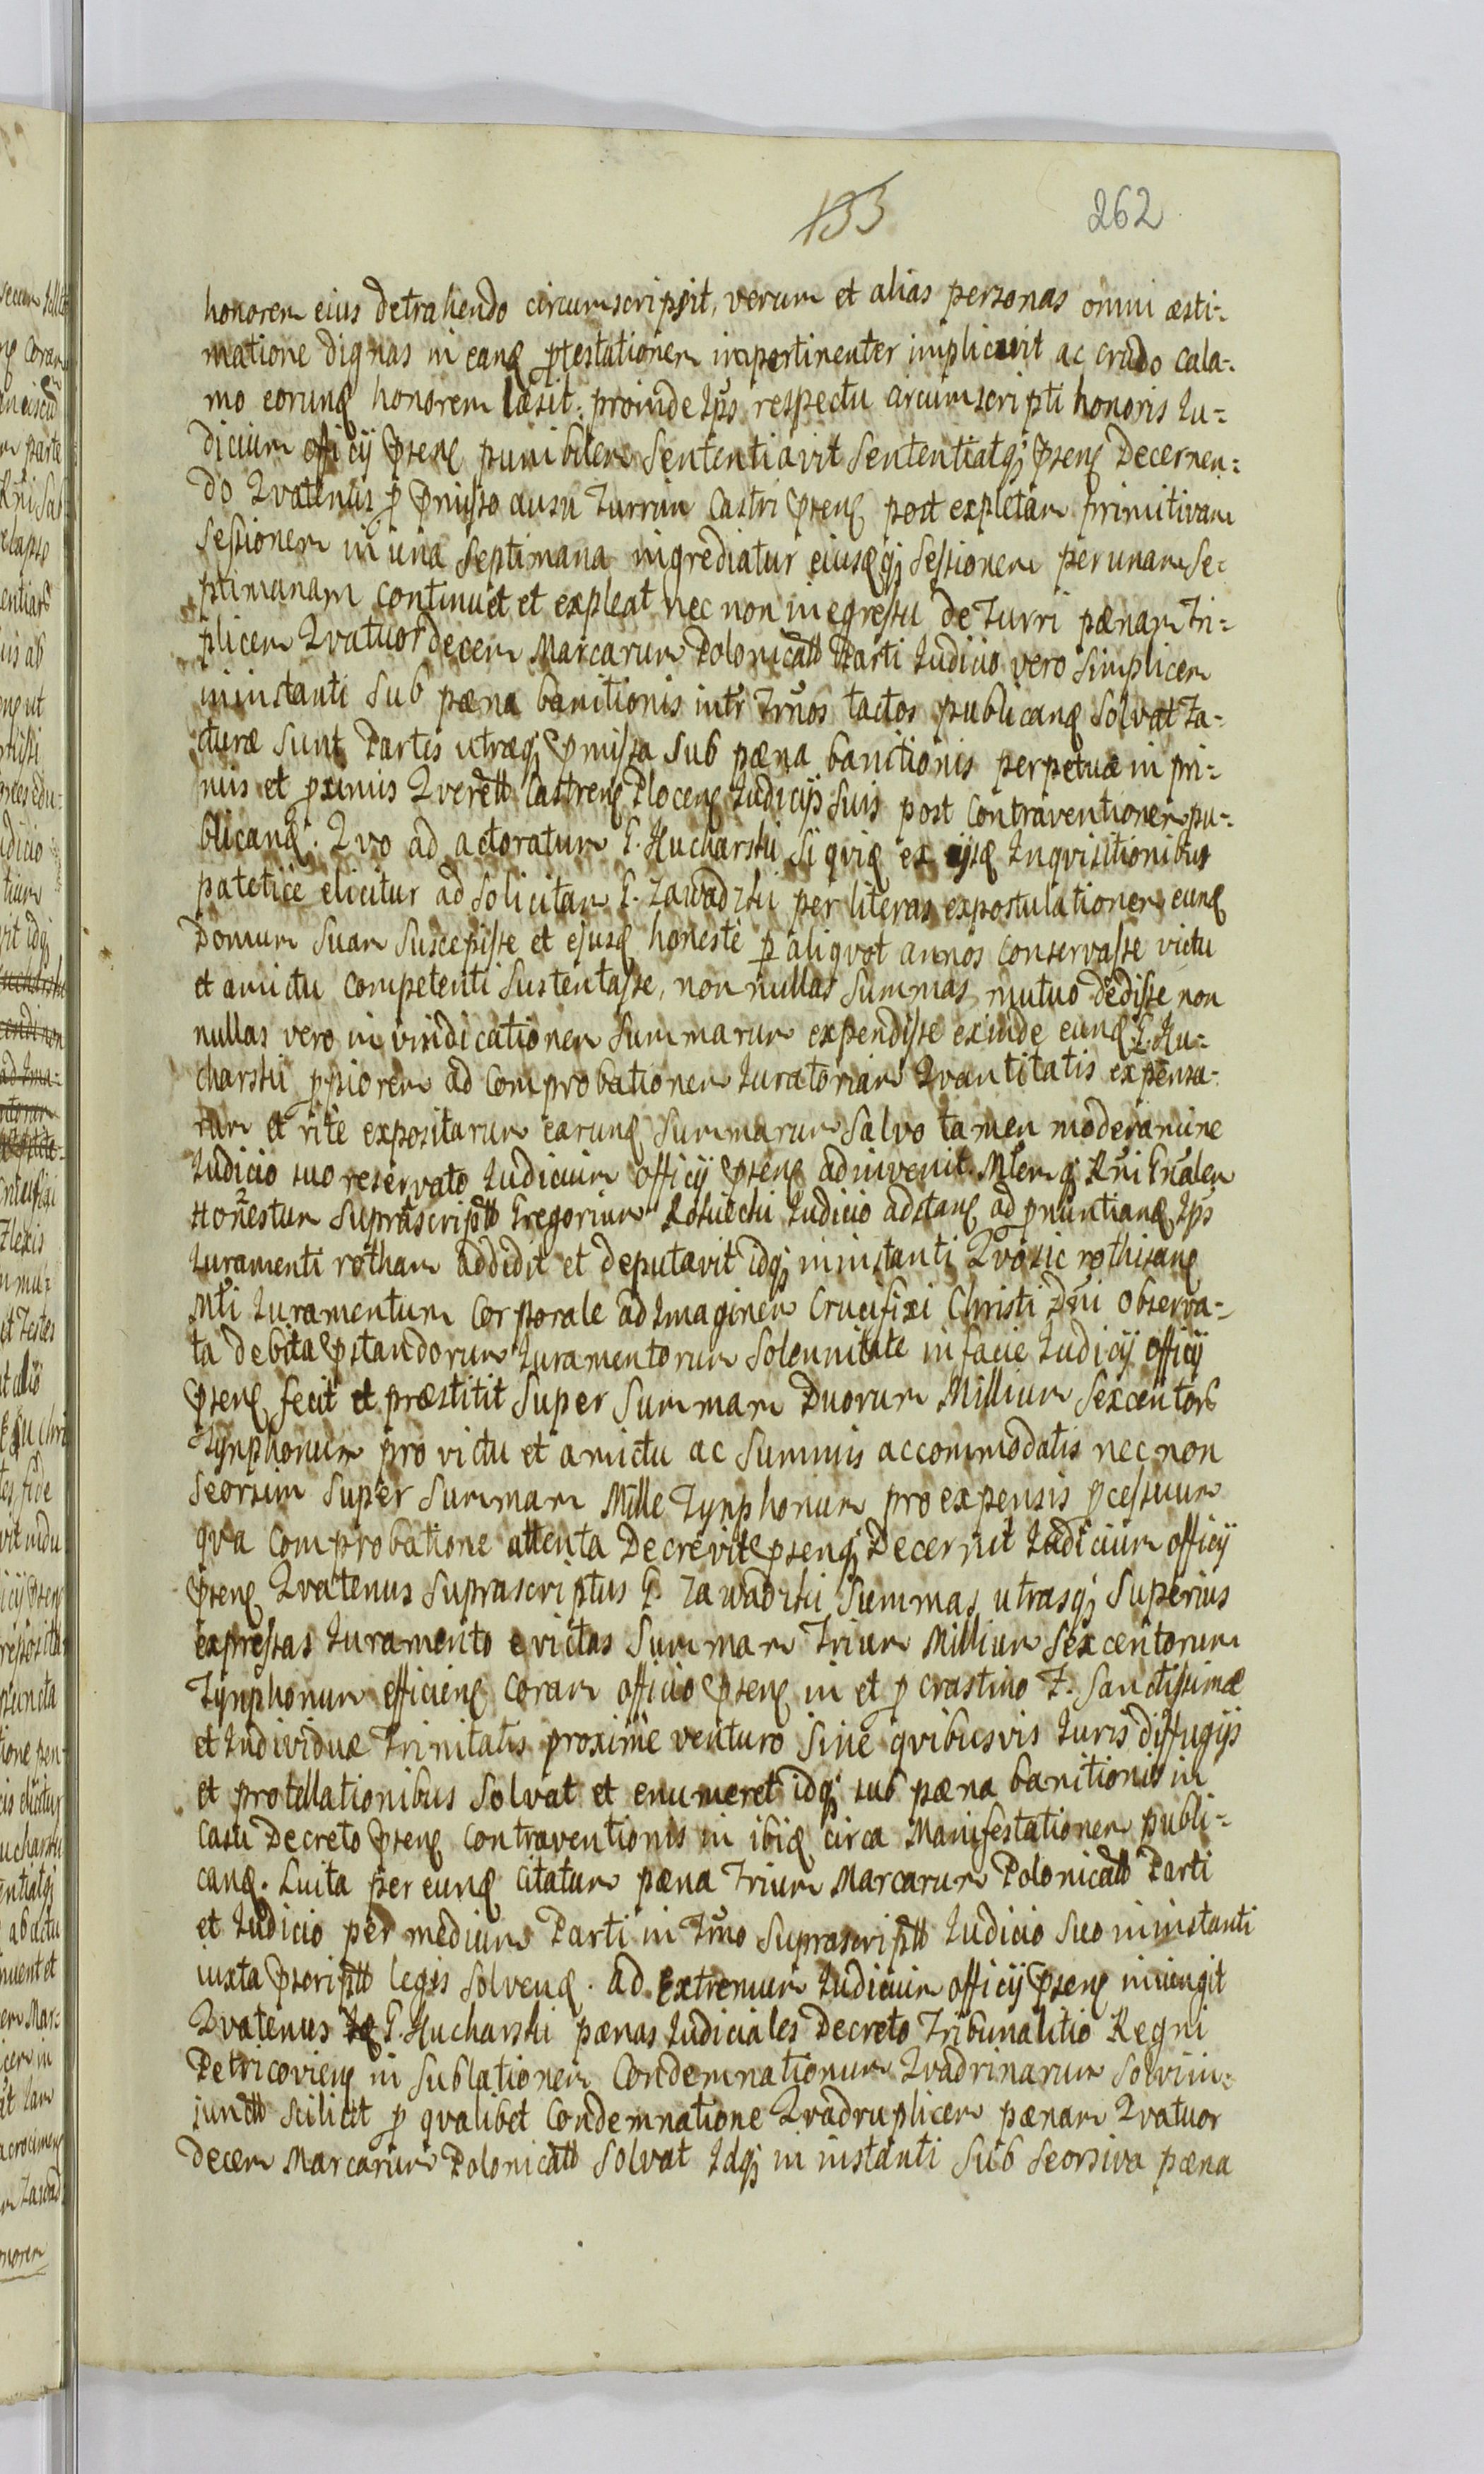 133 262
honorem eius detrahendo circumscripsit, verum et alias personas omni æsti-
matione dignas in eanq protestationem impertinenter implicavit ac crudo cala-
mo eorunq honorem læsit. proinde Ips respectu circumscripti honoris Iu-
dicium officij Psenq punibilem Sententiavit Sententiatq Psenq Decernen-
do Qvatenus p Pmisso ausu Turrim Castri Psenq post expletam primitivam
Sessionem in una Septimana ingrediatur eiusqq Sessionem per unam Se-
ptimanam continuet et expleat nec non in egressu de Turri pænam Tri-
plicem Qvatuordecem Marcarum Polonicall Parti Iudicio vero Simplicem
in instanti Sub pæna banitionis intr Trnos tactos publicanq Solvat Ia-
cturæ Sunt Partes utræq Pmissa Sub pæna banitionis perpetuæ in pri-
mis et pximis Qverell Castrenq Plocenq Iudicijs Suis post Contraventionem pu-
blicanq. Qvo ad actoratum G. Kucharski Si qviq ex ijsq Inqvisitionibus
patetice elicitur ad Solicitam G. Zawadzki per literas expostulationem eunq
Domum Suam Suscepisse et ejusq honeste p aliqvot annos conservasse victu
et amictu Competenti Sustentasse, non nullas Summas mutuo dedisse non
nullas vero in vindicationem Summarum expendisse exinde eunq G. Ku-
charski ppiorem ad Comprobationem Iuratoriam Qvantitatis expensa-
rum et rite expositarum earunq Summarum Salvo tamen moderamine
Iudicio suo reservato Iudicium officij Psenq adinvenit. Mlem q Rni Gnalem
Honestum Suprascriptll Gregorium Iudicio adstanq ad pnuntianq Ips
Iuramenti rotham addidit et deputavit idq in instanti Qvo sic rothisanq
Mti Iuramentum Corporale ad Imaginem Crucifixi Christi Dni observa-
ta debita Pstandorum Iuramentorum Solennitate in facie Iudicij officij
Psenq fecit et præstitit Super Summam Duorum Millium Sexcentorb
Tynphonum pro victu et amictu ac Summis accommodatis nec non
Seorsim Super Summam Mille Tynphonum pro expensis pcessuum
qva Comprobatione attenta Decrevit Psenq Decernit Iudicium officij
Psenq Qvatenus Suprascriptus G. Zawadzki Summas utrasq Superius
expressas Iuramento evictas Summam Trium Millium Sexcentorum
Tynphonum efficienq Coram officio Psenq in et p crastino F. Sanctissimæ
et Individuæ Trinitatis proxime venturo Sine qvibusvis Iuris diffugijs
et protellationibus Solvat et enumeret idq sub pæna banitionis in
Casu Decreto Psenq Contraventionis in ibiq circa Manifestationem publi-
canq. Luita per eunq citatum pæna Trium Marcarum Polonicall Parti
et Iudicio per medium Parti in Trno Suprascriptll Iudicio Suo in instanti
iuxta Pscriptll leges Solvenq. ad Extremum Iudicium officij Psenq iniungit
Qvatenus G. Kucharski pænas Iudiciales Decreto Tribunalitio Regni
Petricovienq in Sublationem Condemnationum Qvadrinarum Solvi in-
junctll Scilicet p qvalibet Condemnatione Qvadruplicem pænam Qvatuor
decem Marcarum Polonicall Solvat Idq in instanti Sub Seorsiva pæna